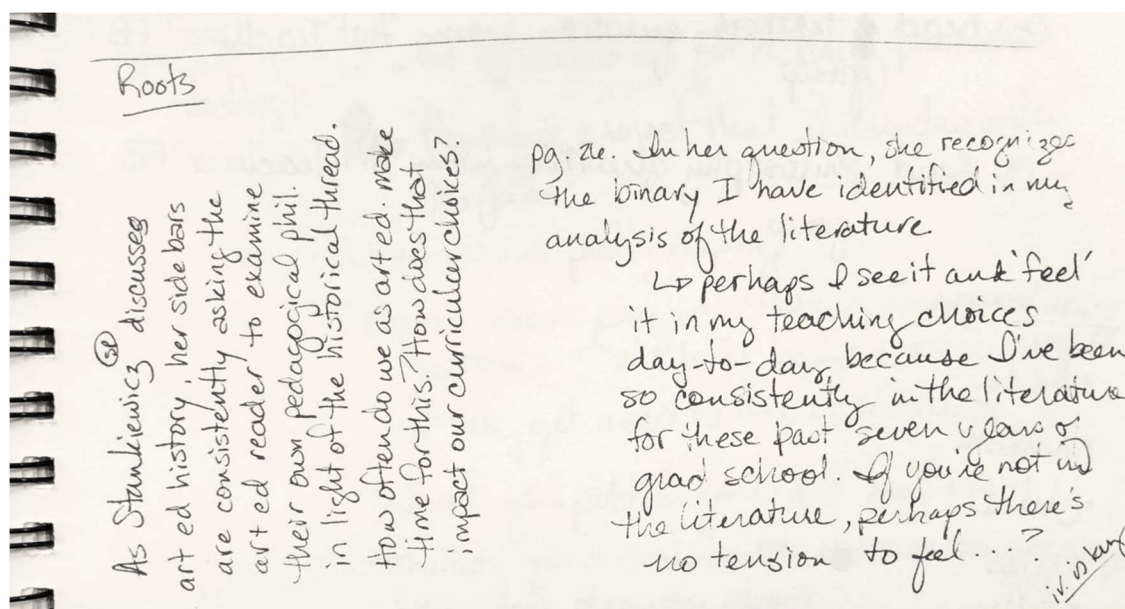 Roots
As Stankiewicz (sp) discusses
art ed history, her sidebars
are consistently asking the
art ed reader to examine
their own pedagogical phil.
in light of the historical thread.
How often do we as art ed. make
time for this? How does that
impact our curricular choices?
In her question, she recognizes
the binary I have identified in my
analysis of the literature.
↳ perhaps I see it and 'feel'
it in my teaching choices
day-to-day because I've been
so consistently in the literature
for these past seven years of
grad school. If you're not in
the literature, perhaps there's
no tension to feel...?